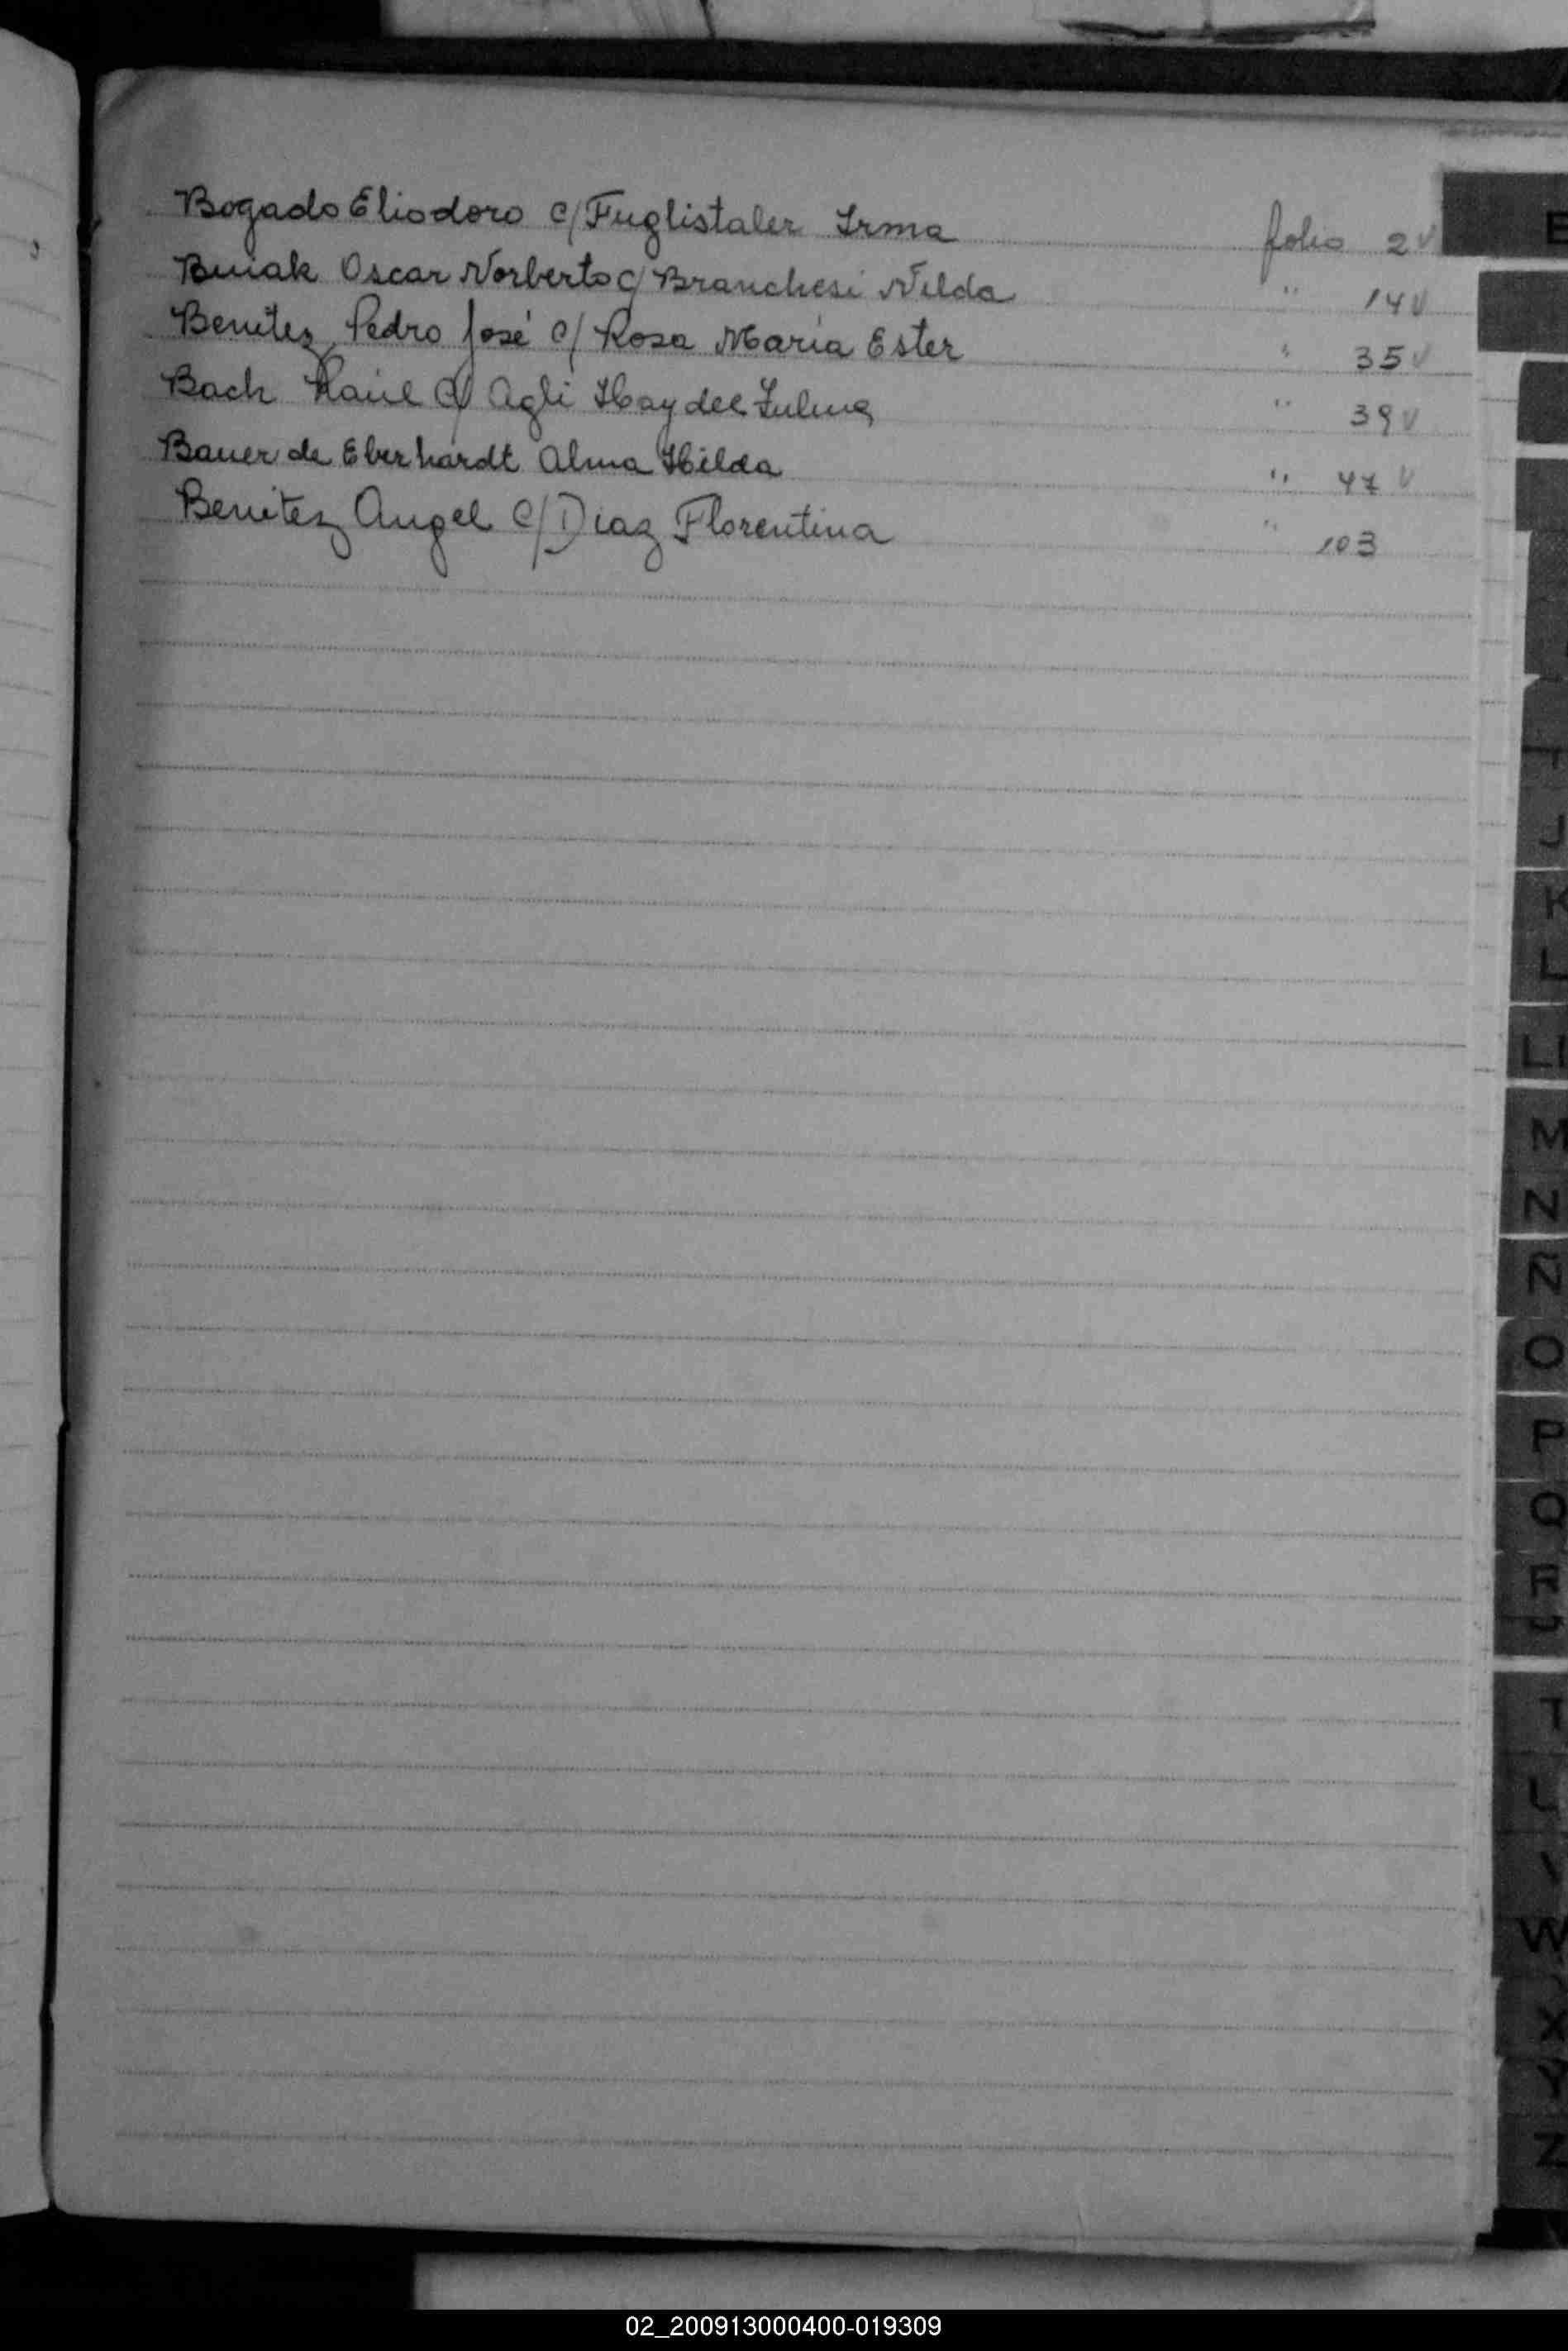 Bogado Eliodoro c/ Fuglistaler Irma folio 2 v
Buiak Oscar Norberto c/ Branchesi Nelda " 14 v
Benitez, Pedro José c/ Rosa María Ester " 35 v
Bach Raúl c/ Agli Haydee Zulma " 39 v
Bauer de Eberhardt Alma Hilda " 47 v
Benitez Angel c/ Diaz Florentina " 103
J
K
L
Ll
M
N
Ñ
O
P
Q
R
T
W
X
Y
Z
02_200913000400-019309